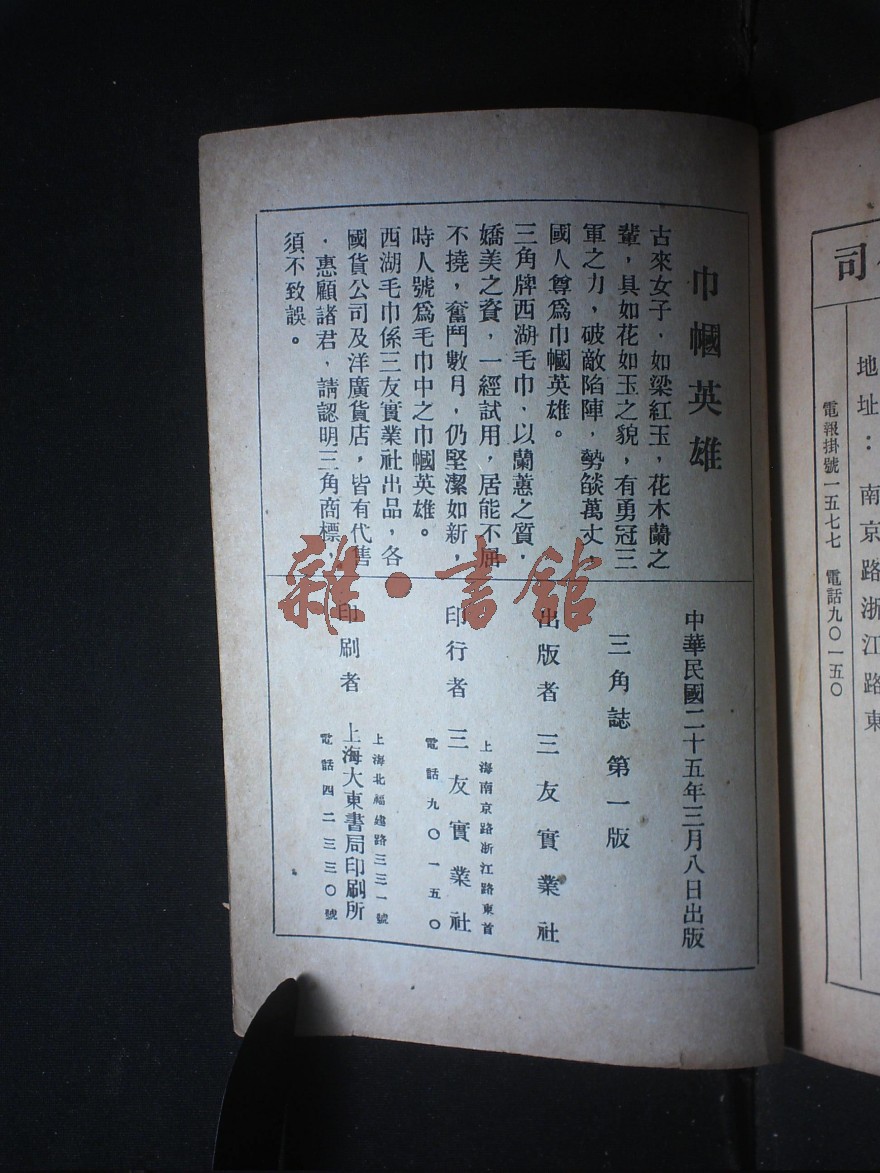 司
地址：南京路浙江路東
電報掛號一五七七 電話九〇一五〇
巾幗英雄
古來女子，如梁紅玉，花木蘭之
輩，具如花如玉之貌，有勇冠三
軍之力，破敵陷陣，勢燄萬丈，
國人尊爲巾幗英雄。
三角牌西湖毛巾，以蘭蕙之質，
嬌美之資，一經試用，居能不屈
不撓，奮鬥數月，仍堅潔如新，
時人號爲毛巾中之巾幗英雄。
西湖毛巾係三友實業社出品，各
國貨公司及洋廣貨店，皆有代售
．惠顧諸君，請認明三角商標，
須不致誤。
中華民國二十五年三月八日出版
三角誌第一版
出版者 三友實業社
上海南京路浙江路東首
印行者 三友實業社
電話九〇一五〇
上海北福建路三三一號
印刷者 上海大東書局印刷所
電話四二三三〇號
雜·書館